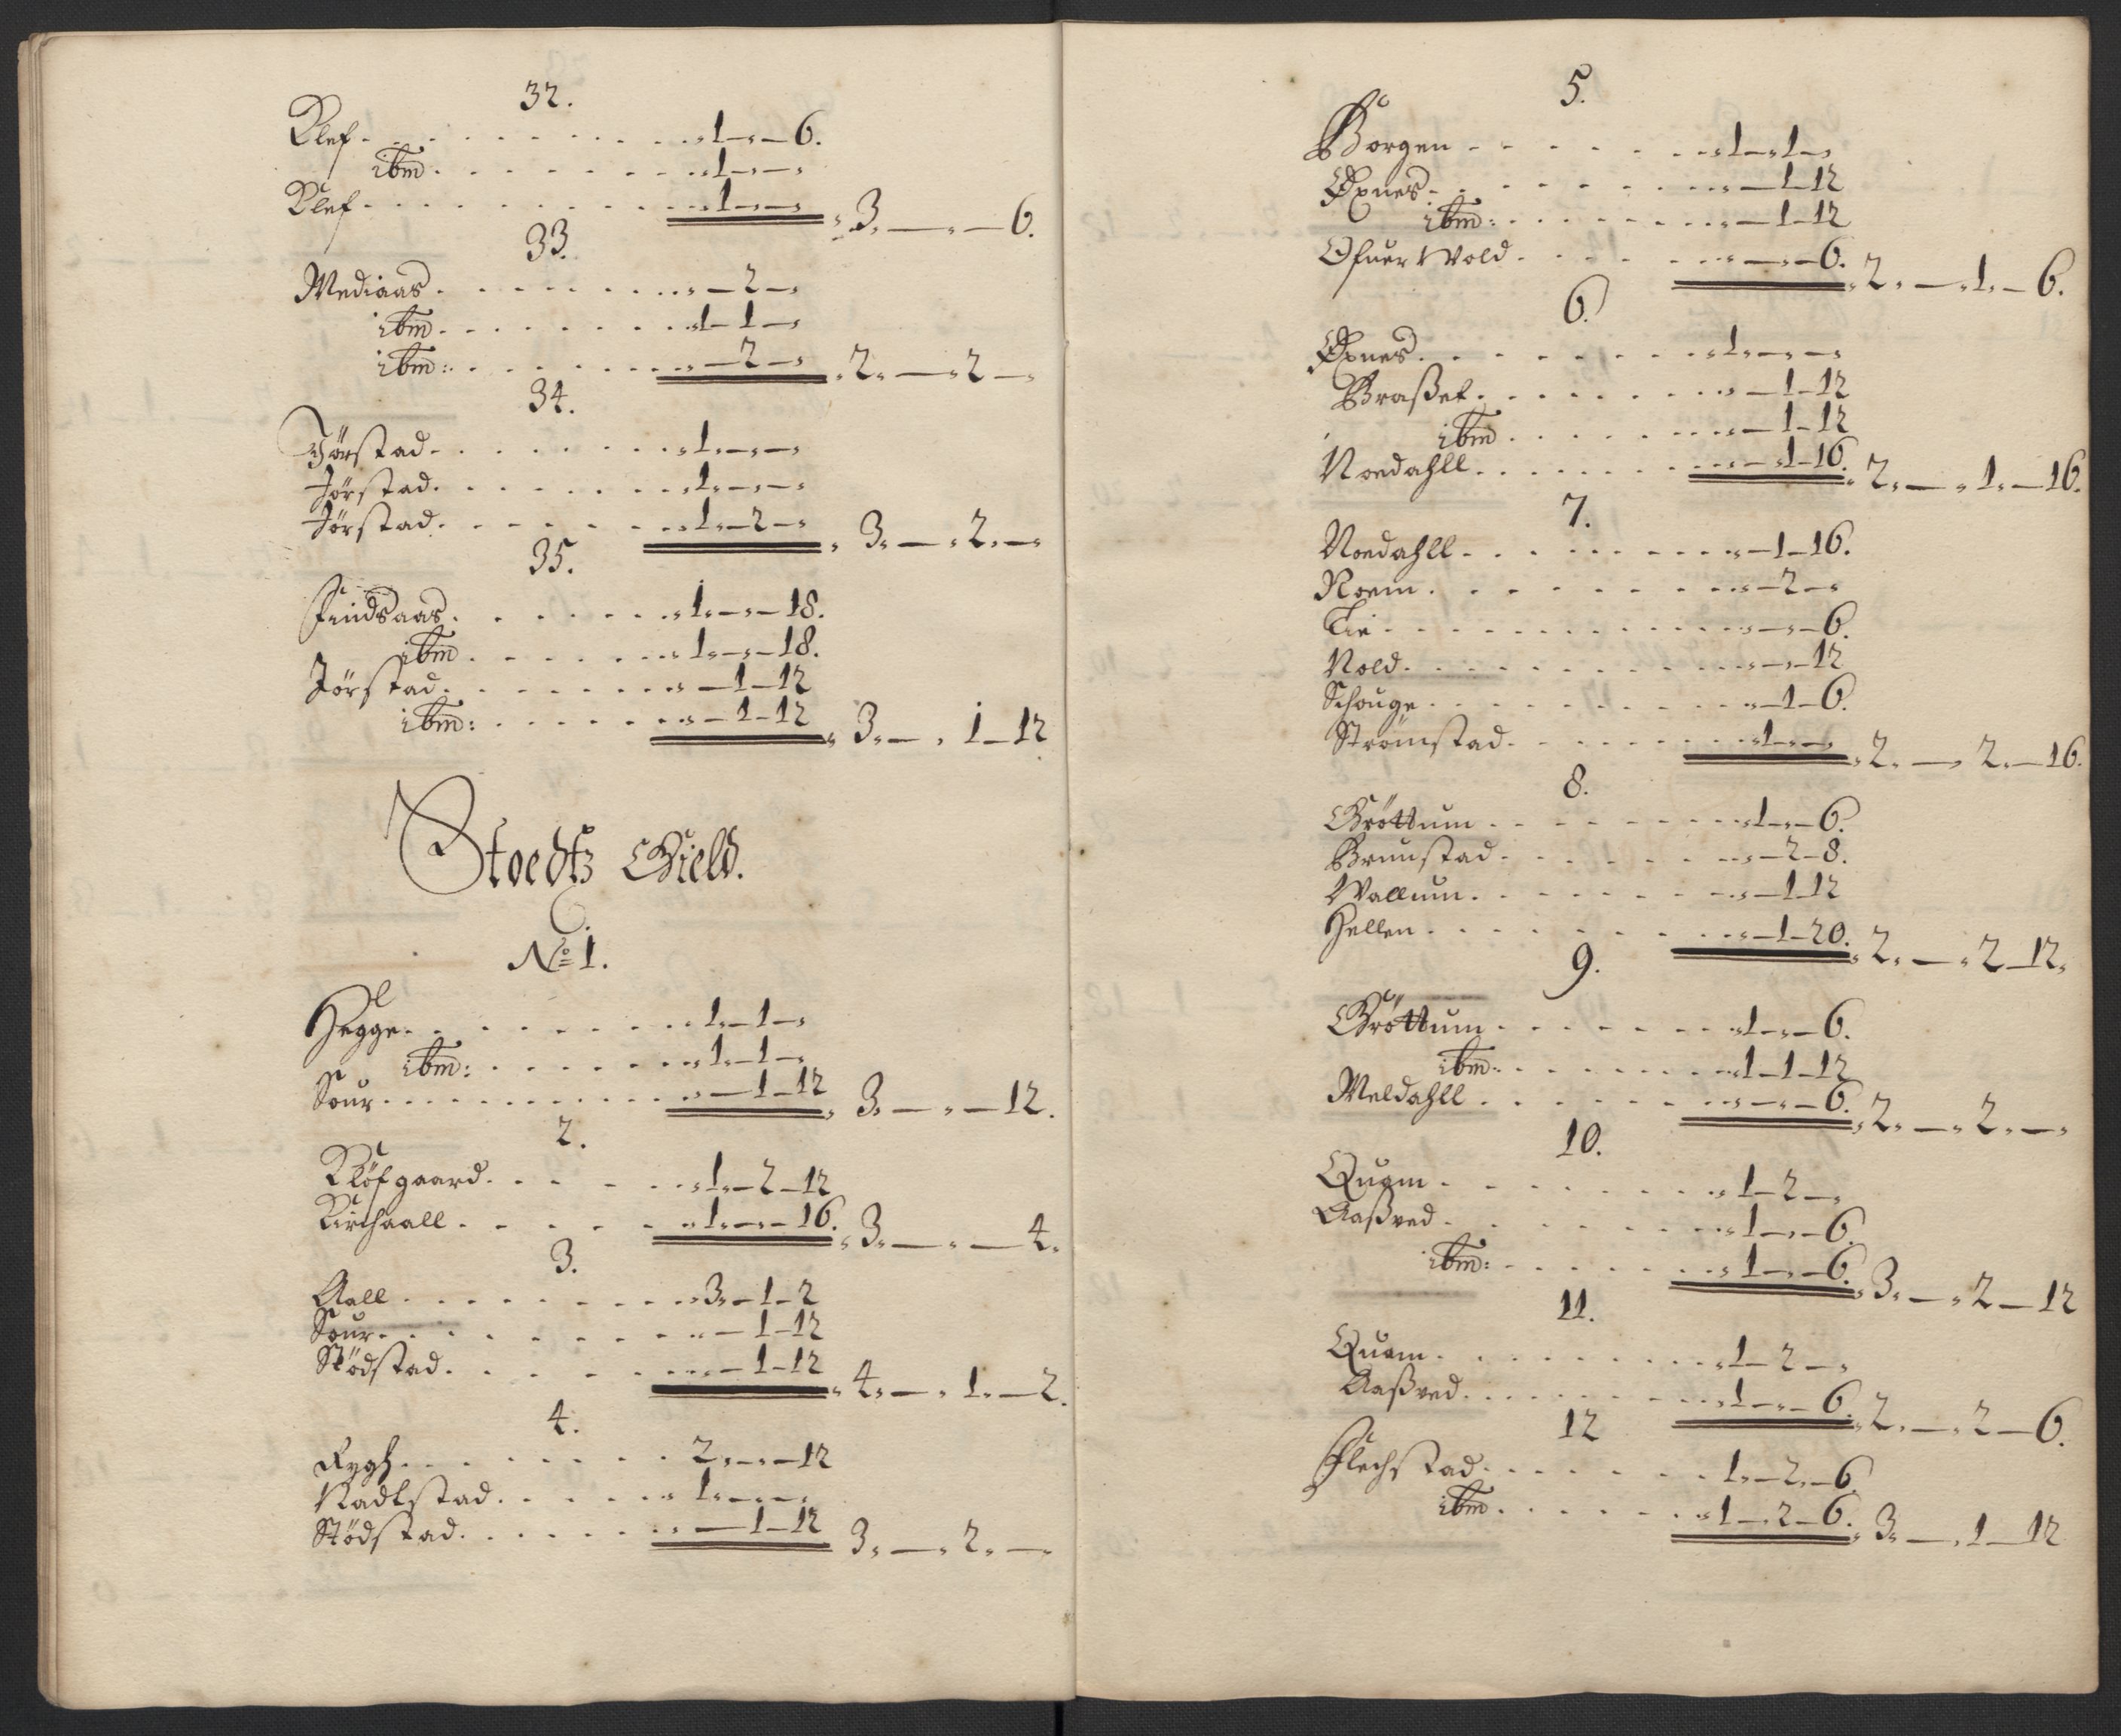 32.
Klef . . . . . . . . . . „1—„—6.
ibm . . . . . . . . . „1—„—„
Klef . . . . . . . . . . „1—„—„ „3„—„—6.
33.
Mediaas . . . . . . . . „—2—„
ibm . . . . . . . . „1—1—„
ibm: . . . . . . . . „—2—„ „2„—„2—„
34.
Jörstad . . . . . . . . „1„—„—„
Jörstad . . . . . . . . „1„—„—„
Jörstad . . . . . . . . „1„—2—„ „3„—„2„—„
35.
Findsaas . . . . . . . „1„—„—18.
ibm . . . . . . . „1„—„—18.
Jörstad . . . . . . . . „—1—12
ibm: . . . . . . . „—1—12 „3„—„1—12
Stoedtz Gield.
C.
No 1.
Hegge . . . . . . . . . „1„—1—„
ibm: . . . . . . . „1„—1—„
Sour . . . . . . . . . . „—1—12 „3„—„—12.
2.
Klöfgaard . . . . . . „1„—2—12
Kirchaall . . . . . . „1„—„—16. „3„—„—4.
3.
Aall . . . . . . . . . „3„—1—2
Sour . . . . . . . . . „—1—12
Stödstad . . . . . . . „—1—12 „4„—„1„—2.
4.
Rygh . . . . . . . . 2„—„—12
Nadlstad . . . . . . „1„—„—„
Stödstad . . . . . . . „—1—12 3„—„2„—„
5.
Borgen . . . . . . . „1—„1—„
Øxnes . . . . . . . . „—1—12
ibm: . . . . . . . „—1—12
Ofuer Wold . . . . . . „—„—6. „2„—„1„—6.
6.
Øxnes . . . . . . . . „1„—„—„
Braßet . . . . . . . . „—1—12
ibm . . . . . . . „—1—12
Noedahll . . . . . . . „—1—16. „2„—„1„—16.
7.
Noedahll . . . . . . . „—1—16.
Roem . . . . . . . . . „—2—„
Lie . . . . . . . . . . „—„—6.
Vold . . . . . . . . . „—„—12
Schouge . . . . . . . . „—1—6.
Strömstad . . . . . . . „1„—„—„ „2„—„2„—16.
8.
Gröttum . . . . . . . „1„—„—6.
Brunstad . . . . . . . „—2—8.
Wallum . . . . . . . . „—1—12
Hellen . . . . . . . . „—1—20. „2„—„2—12„
9.
Gröttum . . . . . . . „1„—„—6.
ibm: . . . . . . . „1—1—12
Meldahll . . . . . . . „—„—6. „2„—„2„—„
10.
Quam . . . . . . . . „1—2—„
Aaßved . . . . . . . „1—„—6.
ibm: . . . . . . . „1—„—6. „3„—„2—12
11.
Quam . . . . . . . . „1—2—„
Aaßved . . . . . . . „1—„—6. „2„—„2—6.
12
Flechstad . . . . . . . 1„—2„—6.
ibm . . . . . . . „1—2—6. „3„—„1—12